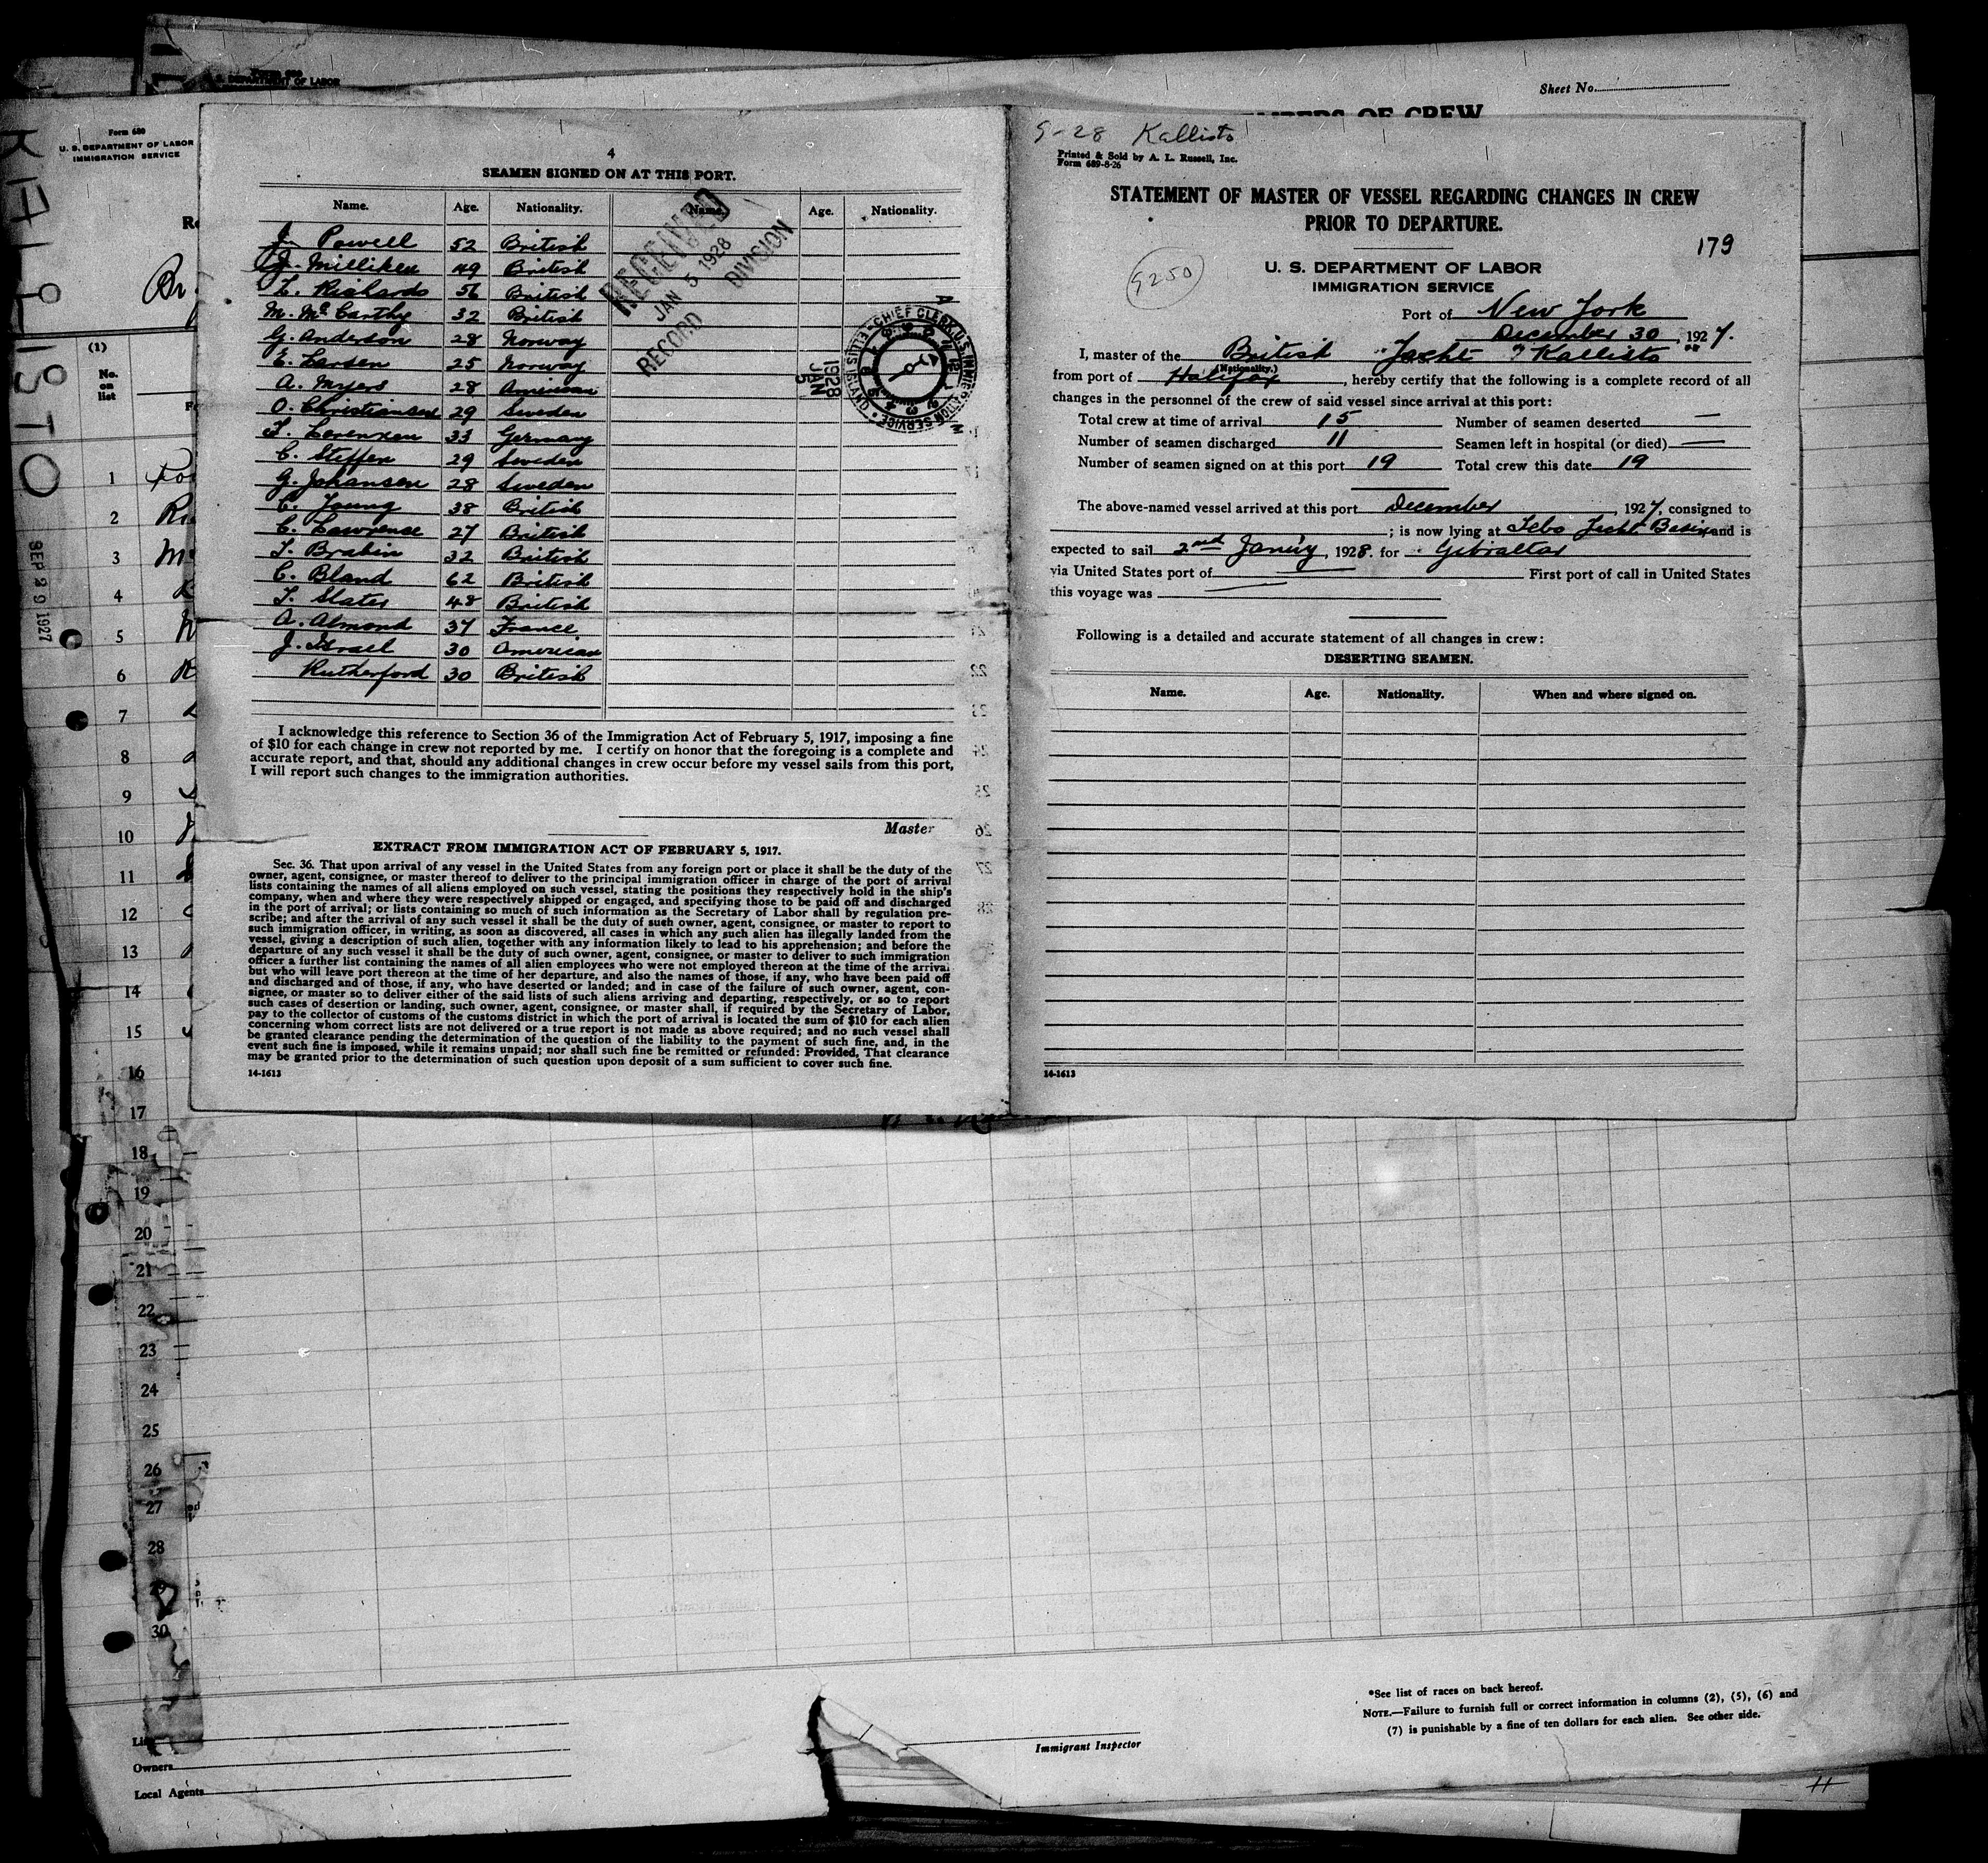 Form 689
U. S. DEPARTMENT OF LABOR
Sheet No.
Form 680
U. S. DEPARTMENT OF LABOR
IMMIGRATION SERVICE
KALLISTO
SEP 29 1927
(1)
No.
on
list
1
2
3
4
5
6
7
8
9
10
11
12
13
14
15
16
17
18
19
20
21
22
23
24
25
26
27
28
29
30
4
SEAMEN SIGNED ON AT THIS PORT.
Name. Age. Nationality. Name. Age. Nationality.
J. Powell 52 British
J. Milliken 49 British
T. Richards 56 British
M. McCarthy 32 British
G. Anderson 28 Norway
E. Larsen 25 Norway
A. Myers 28 American
O. Christiansen 29 Sweden
T. Lorenzen 33 Germany
C. Steffen 29 Sweden
G. Johansen 28 Sweden
C. Young 38 British
C. Lawrense 27 British
T. Brabin 32 British
C. Bland 62 British
T. Slater 48 British
A. Almond 37 France
J. Israel 30 American
Rutherford 30 British
RECEIVED
JAN 5 1928
RECORD DIVISION
CHIEF CLERK U.S. IMMIGRATION SERVICE ELLIS ISLAND
1928 JAN 5
I acknowledge this reference to Section 36 of the Immigration Act of February 5, 1917, imposing a fine
of $10 for each change in crew not reported by me. I certify on honor that the foregoing is a complete and
accurate report, and that, should any additional changes in crew occur before my vessel sails from this port,
I will report such changes to the immigration authorities.
Master
EXTRACT FROM IMMIGRATION ACT OF FEBRUARY 5, 1917.
Sec. 36. That upon arrival of any vessel in the United States from any foreign port or place it shall be the duty of the
owner, agent, consignee, or master thereof to deliver to the principal immigration officer in charge of the port of arrival
lists containing the names of all aliens employed on such vessel, stating the positions they respectively hold in the ship's
company, when and where they were respectively shipped or engaged, and specifying those to be paid off and discharged
in the port of arrival; or lists containing so much of such information as the Secretary of Labor shall by regulation pre-
scribe; and after the arrival of any such vessel it shall be the duty of such owner, agent, consignee, or master to report to
such immigration officer, in writing, as soon as discovered, all cases in which any such alien has illegally landed from the
vessel, giving a description of such alien, together with any information likely to lead to his apprehension; and before the
departure of any such vessel it shall be the duty of such owner, agent, consignee, or master to deliver to such immigration
officer a further list containing the names of all alien employees who were not employed thereon at the time of the arrival
but who will leave port thereon at the time of her departure, and also the names of those, if any, who have been paid off
and discharged and of those, if any, who have deserted or landed; and in case of the failure of such owner, agent, con-
signee, or master so to deliver either of the said lists of such aliens arriving and departing, respectively, or so to report
such cases of desertion or landing, such owner, agent, consignee, or master shall, if required by the Secretary of Labor,
pay to the collector of customs of the customs district in which the port of arrival is located the sum of $10 for each alien
concerning whom correct lists are not delivered or a true report is not made as above required; and no such vessel shall
be granted clearance pending the determination of the question of the liability to the payment of such fine, and, in the
event such fine is imposed, while it remains unpaid; nor shall such fine be remitted or refunded: Provided, That clearance
may be granted prior to the determination of such question upon deposit of a sum sufficient to cover such fine.
14-1613
5-28 Kallisto
Printed & Sold by A. L. Russell, Inc.
Form 689-8-26
STATEMENT OF MASTER OF VESSEL REGARDING CHANGES IN CREW
PRIOR TO DEPARTURE.
179
5250
U. S. DEPARTMENT OF LABOR
IMMIGRATION SERVICE
Port of New York
December 30, 1927.
I, master of the British Yacht "Kallisto"
(Nationality.)
from port of Halifax, hereby certify that the following is a complete record of all
changes in the personnel of the crew of said vessel since arrival at this port:
Total crew at time of arrival 15 Number of seamen deserted —
Number of seamen discharged 11 Seamen left in hospital (or died) —
Number of seamen signed on at this port 19 Total crew this date 19
The above-named vessel arrived at this port December, 1927, consigned to
; is now lying at Tebo Yacht Basin and is
expected to sail 2nd Jan'y, 1928. for Gibraltar
via United States port of First port of call in United States
this voyage was
Following is a detailed and accurate statement of all changes in crew:
DESERTING SEAMEN.
Name. Age. Nationality. When and where signed on.
14-1613
*See list of races on back hereof.
NOTE.—Failure to furnish full or correct information in columns (2), (5), (6) and
(7) is punishable by a fine of ten dollars for each alien. See other side.
Immigrant Inspector
Owners
Local Agents